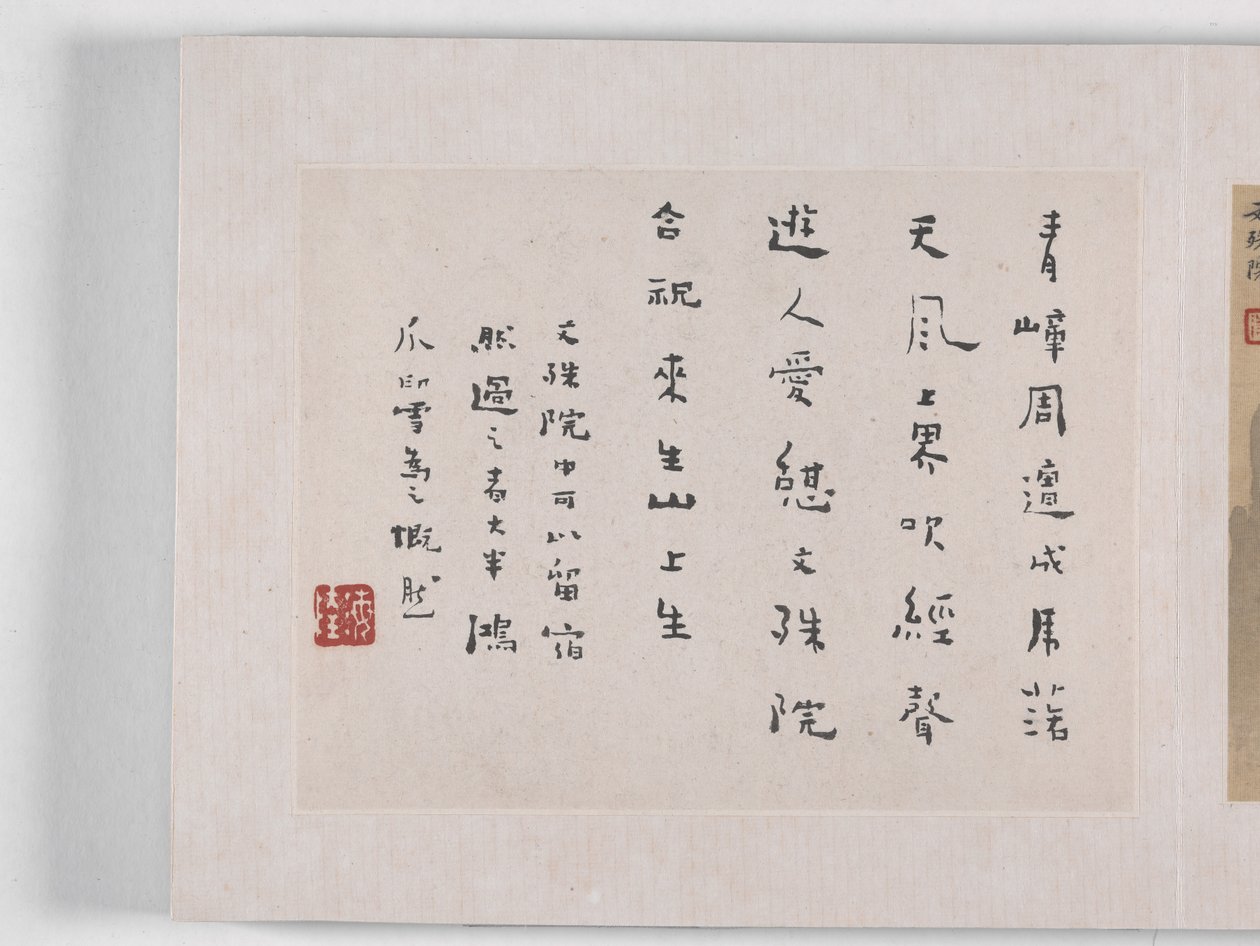 文殊院
青嶂周遭成虎落
天風上界吹經聲
遊人愛憩文殊院
合祝來生山上生
文殊院中可以留宿
然過之者大半鴻
爪印雪為之慨然